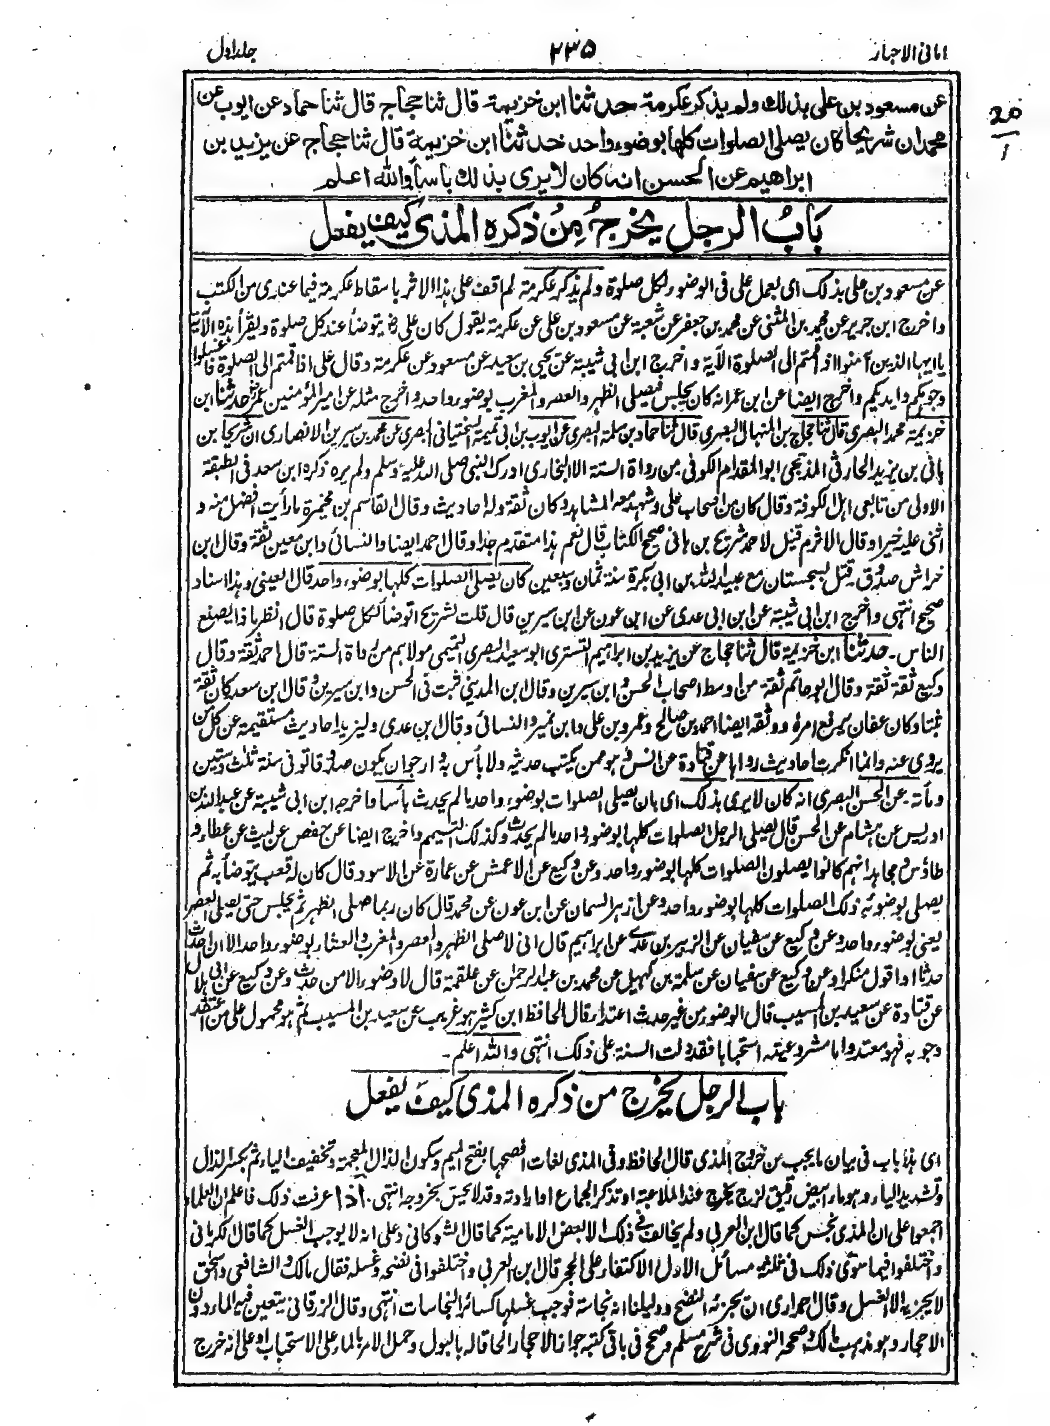 امانی الاحبار
۲۳۵
جلد اول
20
1
عن مسعود بن علی بذلك ولم یذكر عكرمة حدثنا ابن خزیمة قال ثنا حجاج قال ثنا حماد عن ایوب عن
محمد ان شریحا كان یصلی الصلوات كلها بوضوء واحد حدثنا ابن خزیمة قال ثنا حجاج عن یزید بن
ابراهیم عن الحسن انه كان لا یری بذلك بأسا والله اعلم
بَابُ الرجل یخرج مِنْ ذكره المذی كیف یفعل
عن مسعود بن علی بذلك ای بعمل علی فی الوضوء لكل صلوة ولم یذكر عكرمة لم اقف علی هذا الاثر باسقاط عكرمة فیما عندی من الكتب
واخرج ابن جریر عن محمد بن المثنی عن محمد بن جعفر عن شعبة عن مسعود بن علی عن عكرمة یقول كان علی رض یتوضأ عند كل صلوة ویقرأ هذه الآیة
یا ایها الذین آمنوا اذا قمتم الی الصلوة الآیة واخرج ابن ابی شیبة عن یحیی بن سعید عن مسعود عن عكرمة وقال علی اذا قمتم الی الصلوة فاغسلوا
وجوهكم وایدیكم واخرج ایضا عن ابن عمر انه كان یجلس فیصلی الظهر والعصر والمغرب بوضوء واحد واخرج مثله عن امیر المؤمنین عمر حدثنا ابن
خزیمة محمد البصری قال ثنا حجاج بن المنهال البصری قال ثنا حماد بن سلمة البصری عن ایوب بن ابی تمیمة السختیانی البصری عن محمد بن سیرین الانصاری ان شریحا بن
هانی بن یزید الحارثی المذحجی ابو المقدام الكوفی من رواة الستة الا البخاری ادرك النبی صلی الله علیه وسلم ولم یره ذكره ابن سعد فی الطبقة
الاولی من تابعی اهل الكوفة وقال كان من اصحاب علی وشهد معه المشاهد وكان ثقة وله احادیث وقال القاسم بن مخیمرة ما رأیت افضل منه و
اثنی علیه خیرا وقال الاثرم قیل لاحمد شریح بن هانی صحیح الكتاب قال نعم هذا متقدم جدا وقال احمد ایضا والنسائی وابن معین ثقة وقال ابن
خراش صدوق قیل بسجستان مع عبید الله بن ابی بكرة سنة ثمان وسبعین كان یصلی الصلوات كلها بوضوء واحد قال العینی وهذا اسناد
صحیح انتهی واخرج ابن ابی شیبة عن ابن ابی عدی عن ابن عون عن ابن سیرین قال قلت لشریح اتوضأ لكل صلوة قال انظر ماذا یصنع
الناس۔ حدثنا ابن خزیمة قال ثنا حجاج عن یزید بن ابراهیم التستری ابو سعید البصری التمیمی مولاهم من رواة الستة قال احمد ثقة وقال
وكیع ثقة ثقة وقال ابو حاتم ثقة من اوسط اصحاب الحسن وابن سیرین وقال ابن المدینی ثبت فی الحسن وابن سیرین وقال ابن سعد كان ثقة
ثبتا وكان عفان یرفع امره ووثقه ایضا احمد بن صالح وعمرو بن علی وابن نمیر والنسائی وقال ابن عدی ولیزید احادیث مستقیمة عن كل من
یروی عنه وانما انكرت احادیث رواها عن قتادة عن انس وهو ممن یكتب حدیثه ولا بأس به وارجو ان یكون صدوقا توفی سنة ثلث وستین
ومأته۔ عن الحسن البصری انه كان لا یری بذلك ای بان یصلی الصلوات بوضوء واحد ما لم یحدث بأسا واخرجه ابن ابی شیبة عن عبد الله بن
ادریس عن هشام عن الحسن قال یصلی الرجل الصلوات كلها بوضوء واحد ما لم یحدث وكذلك التیمم واخرج ایضا عن حفص عن لیث عن عطاء و
طاؤس ومجاهد انهم كانوا یصلون الصلوات كلها بوضوء واحد وعن وكیع عن الاعمش عن عمارة عن الاسود قال كان له قعب یتوضأ به ثم
یصلی بوضوئه ذلك الصلوات كلها بوضوء واحد وعن ازهر السمان عن ابن عون عن محمد قال كان ربما صلی الظهر ثم یجلس حتی یصلی العصر
یعنی بوضوء واحد وعن وكیع عن سفیان عن الزبیر بن عدی عن ابراهیم قال انی لاصلی الظهر والعصر والمغرب والعشاء بوضوء واحد الا ان احدث
حدثا او اقول منكرا وعن وكیع عن سفیان عن سلمة بن كهیل عن محمد بن عبد الرحمن عن علقمة قال لا وضوء الا من حدث وعن وكیع عن ابی هلال
عن قتادة عن سعید بن المسیب قال الوضوء من غیر حدث اعتداء قال الحافظ ابن كثیر هو غریب عن سعید بن المسیب ثم هو محمول علی من اعتقد
وجوبه فهو معتد واما مشروعیته استحبابا فقد دلت السنة علی ذلك انتهی والله اعلم۔
باب الرجل یخرج من ذكره المذی كیف یفعل
ای هذا باب فی بیان ما یجب من خروج المذی قال الحافظ وفی المذی لغات افصحها بفتح المیم وسكون الذال المعجمة وتخفیف الیاء ثم بكسر الذال
وتشدید الیاء وهو ماء ابیض رقیق لزج یخرج عند الملاعبة او تذكر الجماع او ارادته وقد لا یحس بخروجه انتهی۔ اذا عرفت ذلك فاعلم ان العلماء
اجمعوا علی ان المذی نجس كما قال ابن العربی ولم یخالف فی ذلك الا بعض الامامیة كما قال الشوكانی وعلی انه لا یوجب الغسل كما قال الكرمانی
واختلفوا فیما سوی ذلك فی ثلثة مسائل الاول الاكتفاء علی الحجر قال ابن العربی واختلفوا فی نضحه وغسله فقال مالك والشافعی واسحق
لا یجزیه الا الغسل وقال احمد ارجو ان یجزئه النضح ودلیلنا انه نجاسة فوجب غسلها كسائر النجاسات انتهی وقال الزرقانی یتعین فیه الماء دون
الاحجار وهو مذهب مالك وصححه النووی فی شرح مسلم وصحح فی باقی كتبه جواز الاحجار الحاقا له بالبول وحمل الامر بالماء علی الاستحباب او علی انه خرج